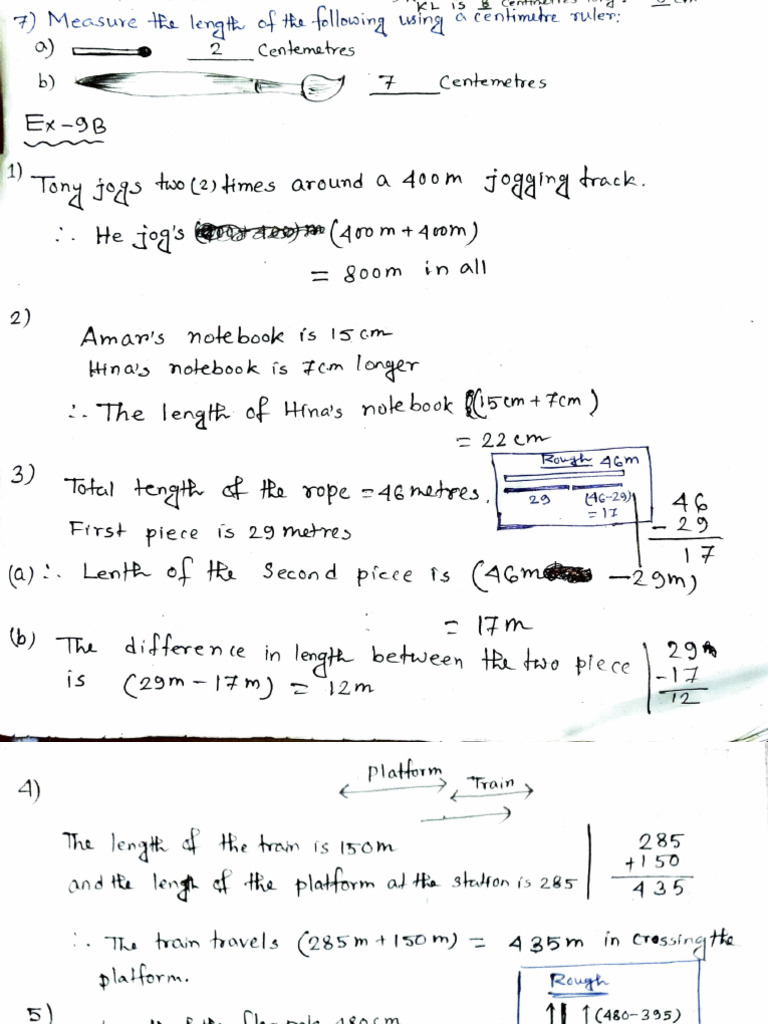 KL is 8 Centimetres long.
7) Measure the length of the following using a centimetre ruler:
a) 2 Centemetres
b) 7 Centemetres
Ex-9B
1) Tony jogs two (2) times around a 400m jogging track.
∴ He jog's (400m + 400m)
= 800m in all
2)
Amar's notebook is 15cm
Hina's notebook is 7cm longer
∴ The length of Hina's notebook (15cm + 7cm)
= 22 cm
3) Total length of the rope = 46 metres.
Rough 46m
29 (46-29)
= 17
First piece is 29 metres
46
- 29
17
(a) ∴ Lenth of the Second piece is (46m - 29m)
= 17m
(b) The difference in length between the two piece
is (29m - 17m) = 12m
29
-17
12
4)
Platform Train
The length of the train is 150m
and the lengh of the platform at the station is 285
285
+150
435
∴ The train travels (285m + 150m) = 435m in crossing the
platform.
5)
Rough
(480-395)
480cm